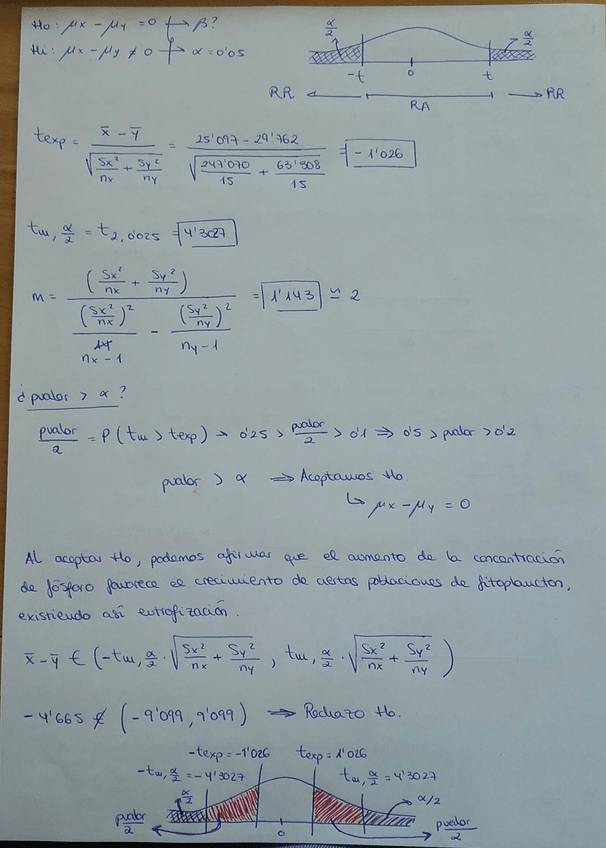 Ho: μx - μy = 0 → β?
H1: μx - μy ≠ 0 → α = 0'05
α/2 α/2
-t 0 t
RR RA RR
texp = (x̄ - ȳ) / √(Sx²/nx + Sy²/ny) = (25'097 - 29'762) / √(247'070/15 + 63'908/15) = -1'026
tm, α/2 = t2, 0'025 = 4'3027
m = (Sx²/nx + Sy²/ny) / ((Sx²/nx)²/(nx-1) - (Sy²/ny)²/(ny-1)) = 1'143 ≃ 2
¿ pvalor > α ?
pvalor/2 = P ( tm > texp ) → 0'25 > pvalor/2 > 0'1 ⇒ 0'5 > pvalor > 0'2
pvalor > α ⇒ Aceptamos Ho.
↳ μx - μy = 0
Al aceptar Ho, podemos afirmar que el aumento de la concentración
de fósforo favorece el crecimiento de ciertas poblaciones de fitoplancton,
existiendo así eutrofización.
x̄ - ȳ ∈ (-tm, α/2 · √(Sx²/nx + Sy²/ny) , tm, α/2 · √(Sx²/nx + Sy²/ny))
-4'665 ∉ (-9'099, 9'099) ⇒ Rechazo Ho.
-texp = -1'026 texp = 1'026
-tm, α/2 = -4'3027 tm, α/2 = 4'3027
α/2 α/2
pvalor/2 0 pvalor/2